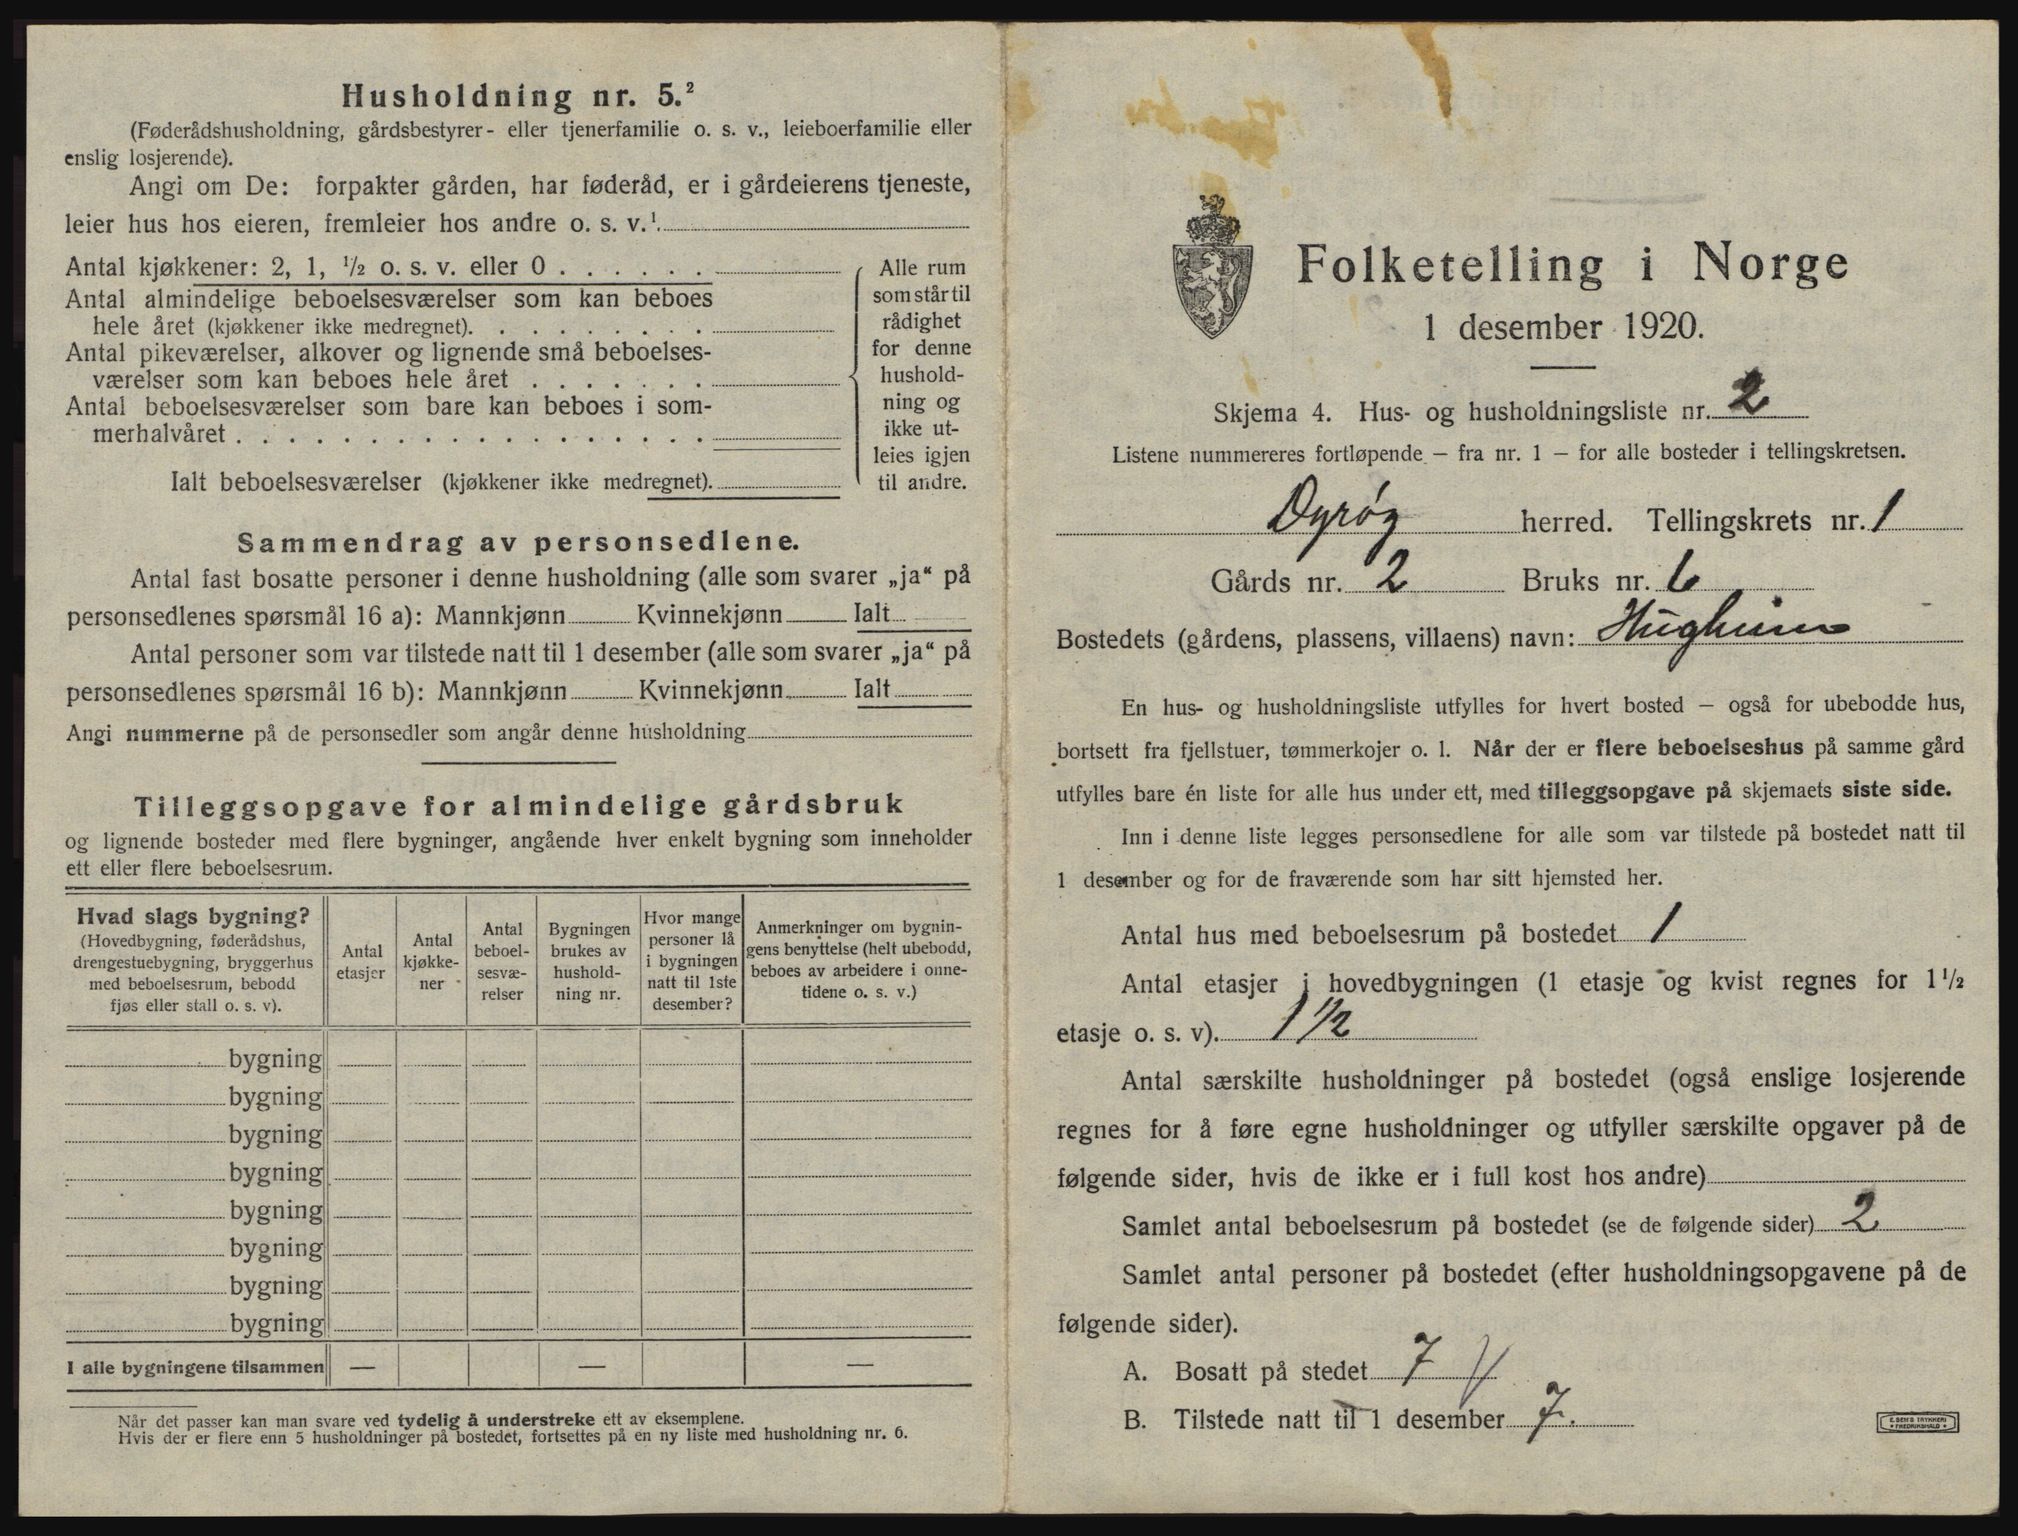 Husholdning nr. 5.²
(Føderådshusholdning, gårdsbestyrer- eller tjenerfamilie o. s. v., leieboerfamilie eller
enslig losjerende).
Angi om De: forpakter gården, har føderåd, er i gårdeierens tjeneste,
leier hus hos eieren, fremleier hos andre o. s. v.¹
Antal kjøkkener: 2, 1, ½ o. s. v. eller 0 . . . . . .
Antal almindelige beboelsesværelser som kan beboes
hele året (kjøkkener ikke medregnet). . . . . . . . .
Antal pikeværelser, alkover og lignende små beboelses-
værelser som kan beboes hele året . . . . . . .
Antal beboelsesværelser som bare kan beboes i som-
merhalvåret . . . . . . . . . . . . . . . . . .
Ialt beboelsesværelser (kjøkkener ikke medregnet).
Alle rum
som står til
rådighet
for denne
hushold-
ning og
ikke ut-
leies igjen
til andre.
Sammendrag av personsedlene.
Antal fast bosatte personer i denne husholdning (alle som svarer „ja“ på
personsedlenes spørsmål 16 a): Mannkjønn Kvinnekjønn Ialt
Antal personer som var tilstede natt til 1 desember (alle som svarer „ja“ på
personsedlenes spørsmål 16 b): Mannkjønn Kvinnekjønn Ialt
Angi nummerne på de personsedler som angår denne husholdning
Tilleggsopgave for almindelige gårdsbruk
og lignende bosteder med flere bygninger, angående hver enkelt bygning som inneholder
ett eller flere beboelsesrum.
Hvad slags bygning?
(Hovedbygning, føderådshus,
drengestuebygning, bryggerhus
med beboelsesrum, bebodd
fjøs eller stall o. s. v).
Antal
etasjer
Antal
kjøkke-
ner
Antal
beboel-
sesvæ-
relser
Bygningen
brukes av
hushold-
ning nr.
Hvor mange
personer lå
i bygningen
natt til 1ste
desember?
Anmerkninger om bygnin-
gens benyttelse (helt ubebodd,
beboes av arbeidere i onne-
tidene o. s. v.)
bygning
bygning
bygning
bygning
bygning
bygning
bygning
bygning
I alle bygningene tilsammen — — —
Når det passer kan man svare ved tydelig å understreke ett av eksemplene.
Hvis der er flere enn 5 husholdninger på bostedet, fortsettes på en ny liste med husholdning nr. 6.
Folketelling i Norge
1 desember 1920.
Skjema 4. Hus- og husholdningsliste nr. 2
Listene nummereres fortløpende — fra nr. 1 — for alle bosteder i tellingskretsen.
Dyrøy herred. Tellingskrets nr. 1
Gårds nr. 2 Bruks nr. 6
Bostedets (gårdens, plassens, villaens) navn:
En hus- og husholdningsliste utfylles for hvert bosted — også for ubebodde hus,
bortsett fra fjellstuer, tømmerkojer o. l. Når der er flere beboelseshus på samme gård
utfylles bare én liste for alle hus under ett, med tilleggsopgave på skjemaets siste side.
Inn i denne liste legges personsedlene for alle som var tilstede på bostedet natt til
1 desember og for de fraværende som har sitt hjemsted her.
Antal hus med beboelsesrum på bostedet 1
Antal etasjer i hovedbygningen (1 etasje og kvist regnes for 1½
etasje o. s. v). 1 ½
Antal særskilte husholdninger på bostedet (også enslige losjerende
regnes for å føre egne husholdninger og utfyller særskilte opgaver på de
følgende sider, hvis de ikke er i full kost hos andre)
Samlet antal beboelsesrum på bostedet (se de følgende sider) 2
Samlet antal personer på bostedet (efter husholdningsopgavene på de
følgende sider).
A. Bosatt på stedet 7
B. Tilstede natt til 1 desember 7.
E. SEM'S TRYKKERI
FREDRIKSHALD